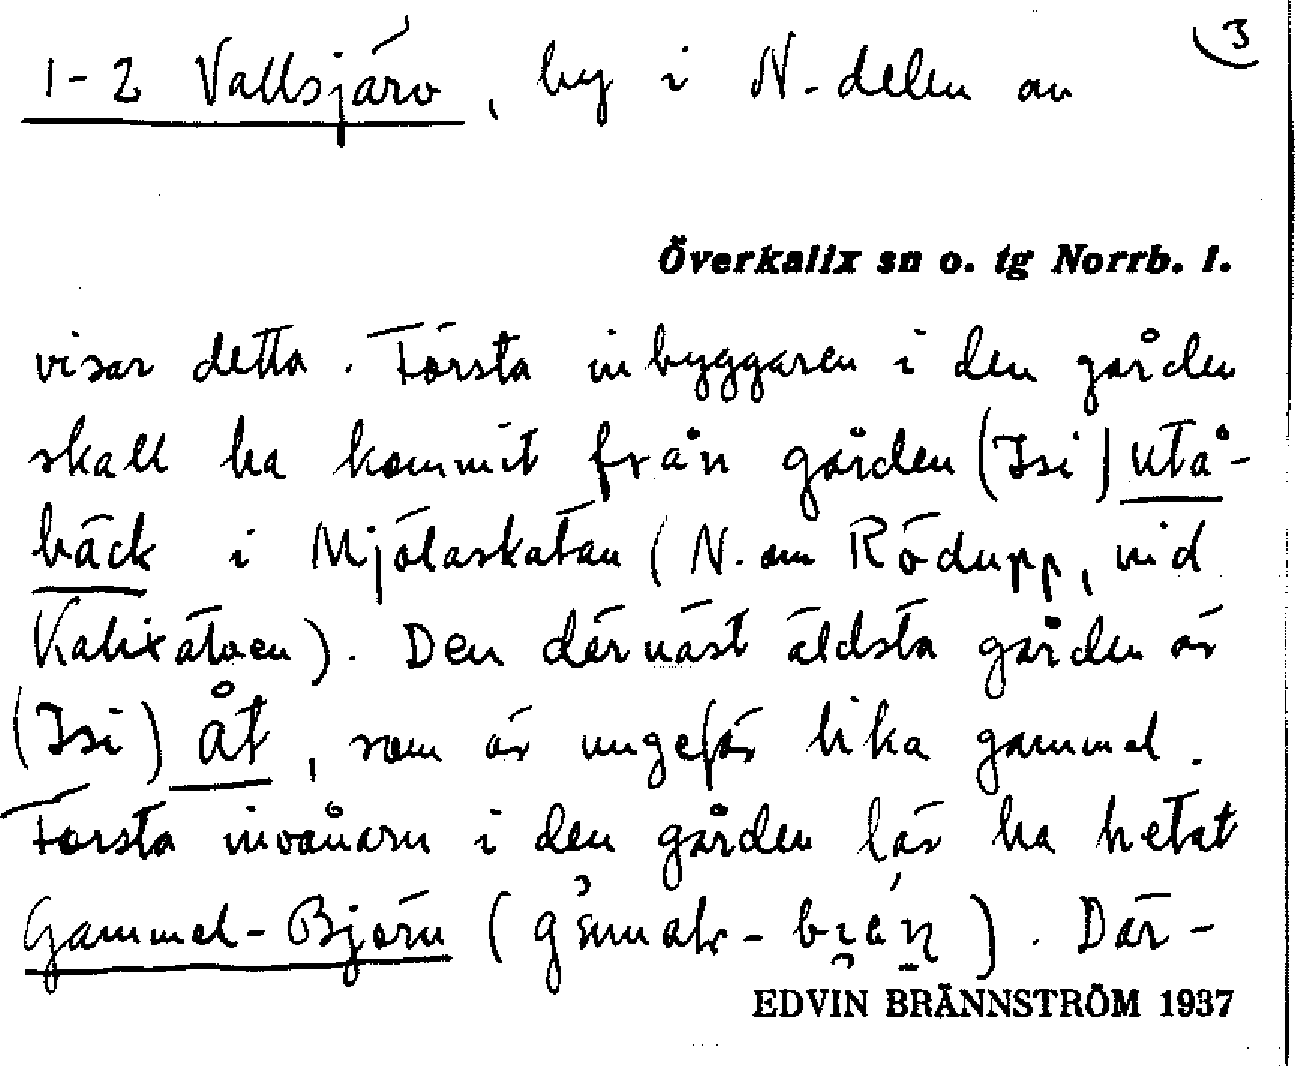 3
1-2 Vallsjärv, by i N-delen av
Överkalix sn o. tg Norrb. l.
visar detta. Första inbyggaren i den gården
skall ha kommit från gården (Isi) utå-
bäck i Mjölaskatan (N. om Rödupp, vid
Kalixälven). Den därnäst äldsta gården är
(Isi) åt, som är ungefär lika gammal.
Första invånarn i den gården lär ha hetat
Gammel-Björn ( ). Där-
EDVIN BRÄNNSTRÖM 1937